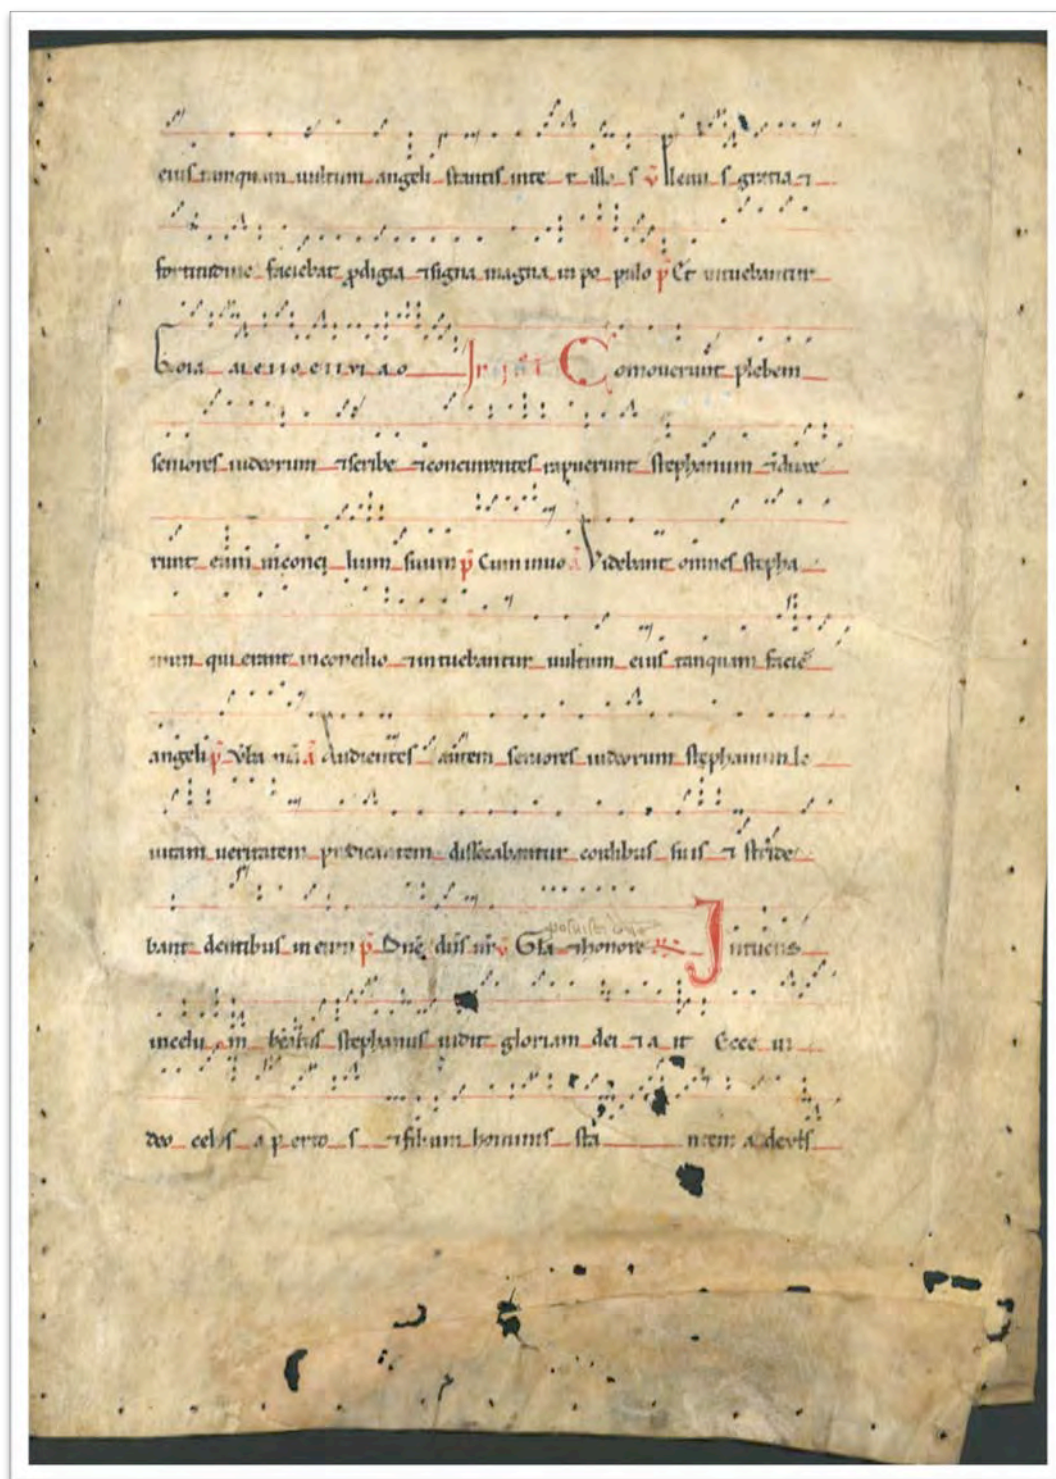 eius tanquam uultum angeli stantis inte r illo s v̄ Plenus gratia ⁊
fortitudine faciebat ꝓdigia ⁊ signa magna in po pulo p̄ Et intuebantur
Gloia
C omouerunt plebem
seniores iudeorum ⁊ scribe ⁊ concurrentes rapuerunt stephanum ⁊ duxe
runt eum in conci lium suum p̄ Cum inuo ā Videbant omnes stepha
num qui erant in concilio ⁊ intuebantur uultum eius tanquam faciē
angeli p̄ ā Audientes autem seniores iudeorum stephanum le
uitam ueritatem predicantem dissecabantur cordibus suis ⁊ stride
bant dentibus in eum p̄ Dn̄e dn̄s nr̄ v̄ Gl̄a ⁊ honore Intuens
in celu m beatus stephanus uidit gloriam dei ⁊ a it Ecce ui
deo celos a p erto s ⁊ filium hominis sta ntem a dextris